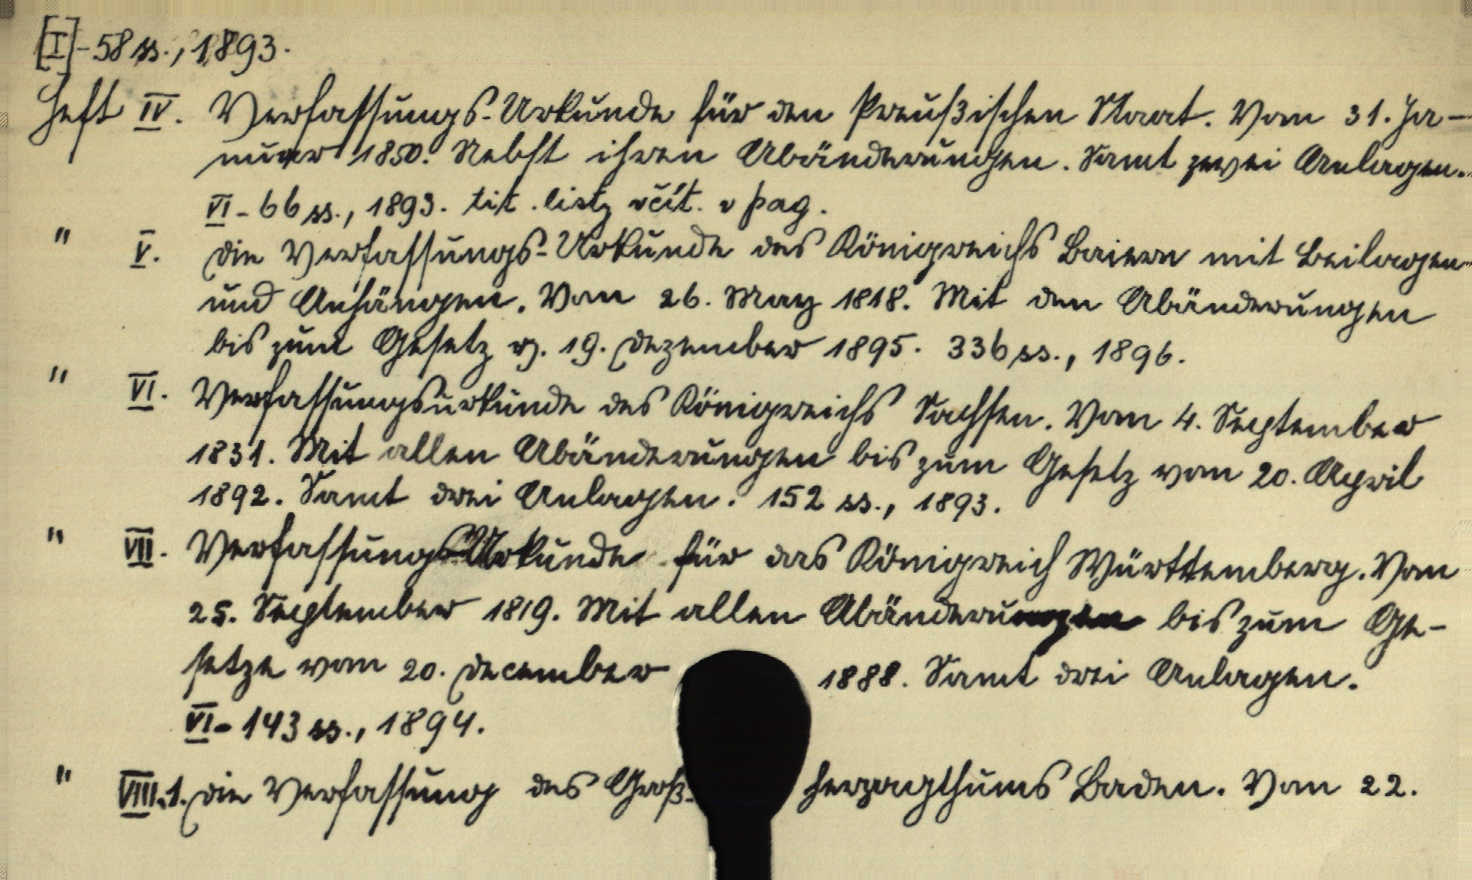 [I]-58 ss., 1893.
Heft IV. Verfassungs-Urkunde für den Preußischen Staat. Vom 31. Ja-
nuar 1850. Nebst ihren Abänderungen. Samt zwei Anlagen.
VI-66 ss., 1893. tit. listy včít. v pag.
" V. Die Verfassungs-Urkunde des Königreichs Baiern mit Beilagen
und Anhängen. Vom 26. May 1818. Mit den Abänderungen
bis zum Gesetz v. 19. Dezember 1895. 336 ss., 1896.
" VI. Verfassungsurkunde des Königreichs Sachsen. Vom 4. September
1831. Mit allen Abänderungen bis zum Gesetz vom 20. April
1892. Samt drei Anlagen. 152 ss., 1893.
" VII. Verfassungs-Urkunde für das Königreich Württemberg. Vom
25. September 1819. Mit allen Abänderungen bis zum Ge-
setze vom 20. December 1888. Samt drei Anlagen.
VI-143 ss., 1894.
" VIII.1. Die Verfassung des Groß-herzogthums Baden. Vom 22.